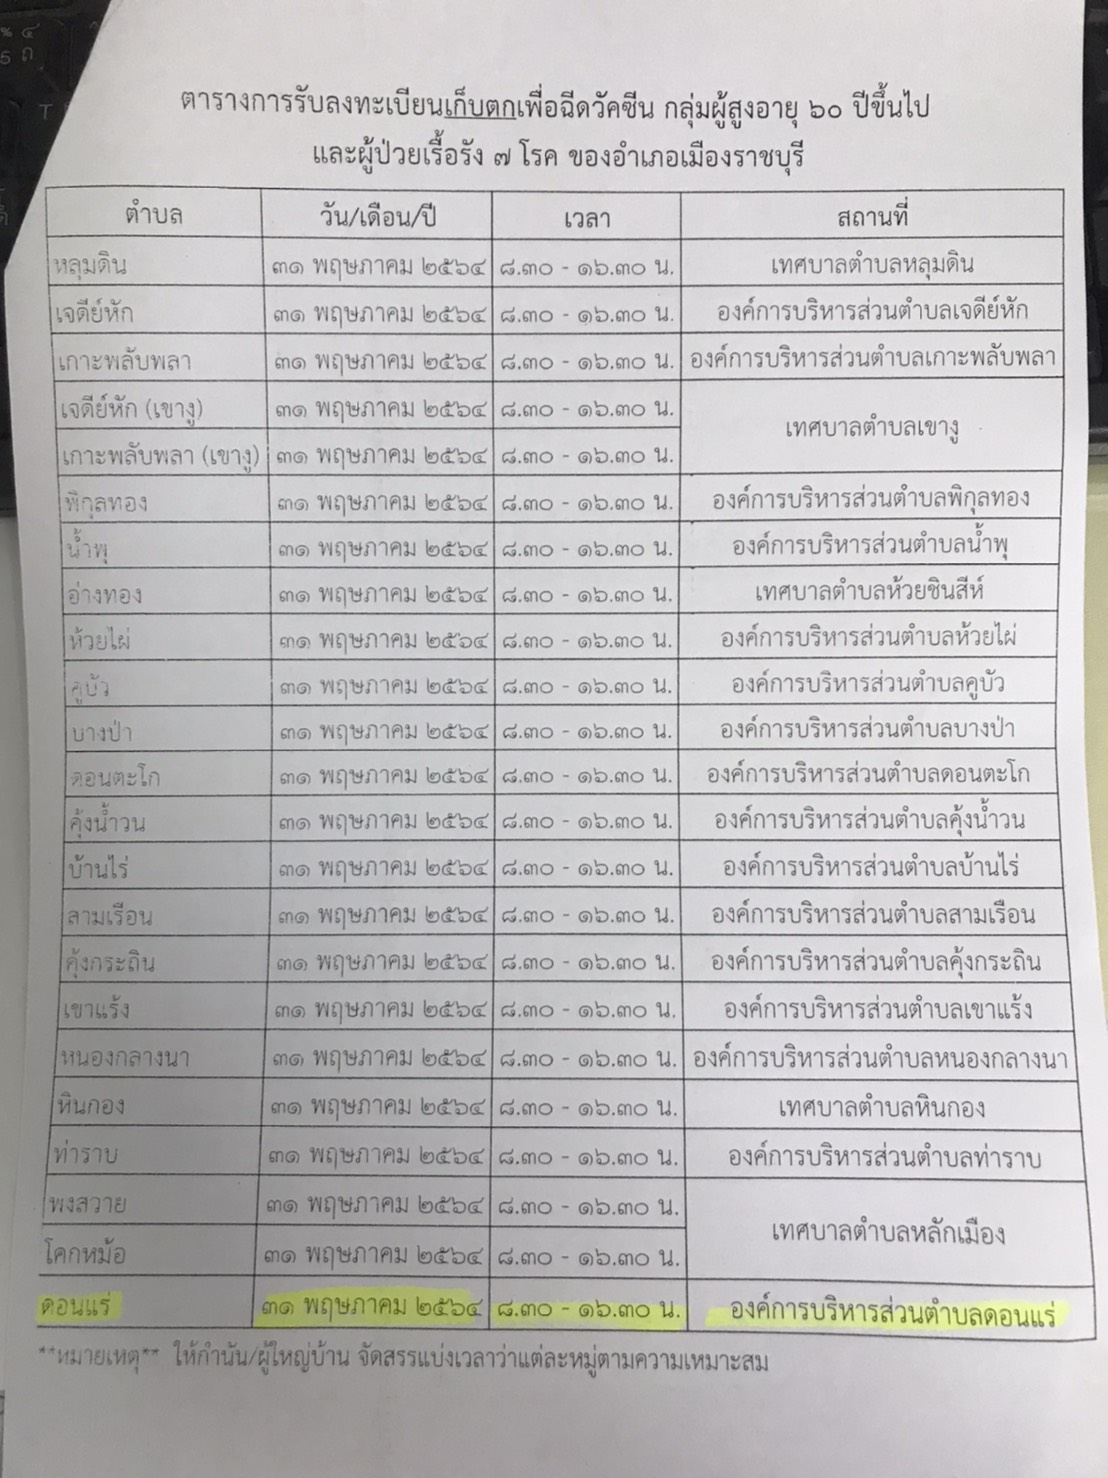 ตารางการรับลงทะเบียนเก็บตกเพื่อฉีดวัคซีน กลุ่มผู้สูงอายุ ๖๐ ปีขึ้นไป
และผู้ป่วยเรื้อรัง ๗ โรค ของอำเภอเมืองราชบุรี
ตำบล วัน/เดือน/ปี เวลา สถานที่
หลุมดิน ๓๑ พฤษภาคม ๒๕๖๔ ๘.๓๐ - ๑๖.๓๐ น. เทศบาลตำบลหลุมดิน
เจดีย์หัก ๓๑ พฤษภาคม ๒๕๖๔ ๘.๓๐ - ๑๖.๓๐ น. องค์การบริหารส่วนตำบลเจดีย์หัก
เกาะพลับพลา ๓๑ พฤษภาคม ๒๕๖๔ ๘.๓๐ - ๑๖.๓๐ น. องค์การบริหารส่วนตำบลเกาะพลับพลา
เจดีย์หัก (เขางู) ๓๑ พฤษภาคม ๒๕๖๔ ๘.๓๐ - ๑๖.๓๐ น. เทศบาลตำบลเขางู
เกาะพลับพลา (เขางู) ๓๑ พฤษภาคม ๒๕๖๔ ๘.๓๐ - ๑๖.๓๐ น.
พิกุลทอง ๓๑ พฤษภาคม ๒๕๖๔ ๘.๓๐ - ๑๖.๓๐ น. องค์การบริหารส่วนตำบลพิกุลทอง
น้ำพุ ๓๑ พฤษภาคม ๒๕๖๔ ๘.๓๐ - ๑๖.๓๐ น. องค์การบริหารส่วนตำบลน้ำพุ
อ่างทอง ๓๑ พฤษภาคม ๒๕๖๔ ๘.๓๐ - ๑๖.๓๐ น. เทศบาลตำบลห้วยชินสีห์
ห้วยไผ่ ๓๑ พฤษภาคม ๒๕๖๔ ๘.๓๐ - ๑๖.๓๐ น. องค์การบริหารส่วนตำบลห้วยไผ่
คูบัว ๓๑ พฤษภาคม ๒๕๖๔ ๘.๓๐ - ๑๖.๓๐ น. องค์การบริหารส่วนตำบลคูบัว
บางป่า ๓๑ พฤษภาคม ๒๕๖๔ ๘.๓๐ - ๑๖.๓๐ น. องค์การบริหารส่วนตำบลบางป่า
ดอนตะโก ๓๑ พฤษภาคม ๒๕๖๔ ๘.๓๐ - ๑๖.๓๐ น. องค์การบริหารส่วนตำบลดอนตะโก
คุ้งน้ำวน ๓๑ พฤษภาคม ๒๕๖๔ ๘.๓๐ - ๑๖.๓๐ น. องค์การบริหารส่วนตำบลคุ้งน้ำวน
บ้านไร่ ๓๑ พฤษภาคม ๒๕๖๔ ๘.๓๐ - ๑๖.๓๐ น. องค์การบริหารส่วนตำบลบ้านไร่
สามเรือน ๓๑ พฤษภาคม ๒๕๖๔ ๘.๓๐ - ๑๖.๓๐ น. องค์การบริหารส่วนตำบลสามเรือน
คุ้งกระถิน ๓๑ พฤษภาคม ๒๕๖๔ ๘.๓๐ - ๑๖.๓๐ น. องค์การบริหารส่วนตำบลคุ้งกระถิน
เขาแร้ง ๓๑ พฤษภาคม ๒๕๖๔ ๘.๓๐ - ๑๖.๓๐ น. องค์การบริหารส่วนตำบลเขาแร้ง
หนองกลางนา ๓๑ พฤษภาคม ๒๕๖๔ ๘.๓๐ - ๑๖.๓๐ น. องค์การบริหารส่วนตำบลหนองกลางนา
หินกอง ๓๑ พฤษภาคม ๒๕๖๔ ๘.๓๐ - ๑๖.๓๐ น. เทศบาลตำบลหินกอง
ท่าราบ ๓๑ พฤษภาคม ๒๕๖๔ ๘.๓๐ - ๑๖.๓๐ น. องค์การบริหารส่วนตำบลท่าราบ
พงสวาย ๓๑ พฤษภาคม ๒๕๖๔ ๘.๓๐ - ๑๖.๓๐ น. เทศบาลตำบลหลักเมือง
โคกหม้อ ๓๑ พฤษภาคม ๒๕๖๔ ๘.๓๐ - ๑๖.๓๐ น.
ดอนแร่ ๓๑ พฤษภาคม ๒๕๖๔ ๘.๓๐ - ๑๖.๓๐ น. องค์การบริหารส่วนตำบลดอนแร่
**หมายเหตุ** ให้กำนัน/ผู้ใหญ่บ้าน จัดสรรแบ่งเวลาว่าแต่ละหมู่ตามความเหมาะสม